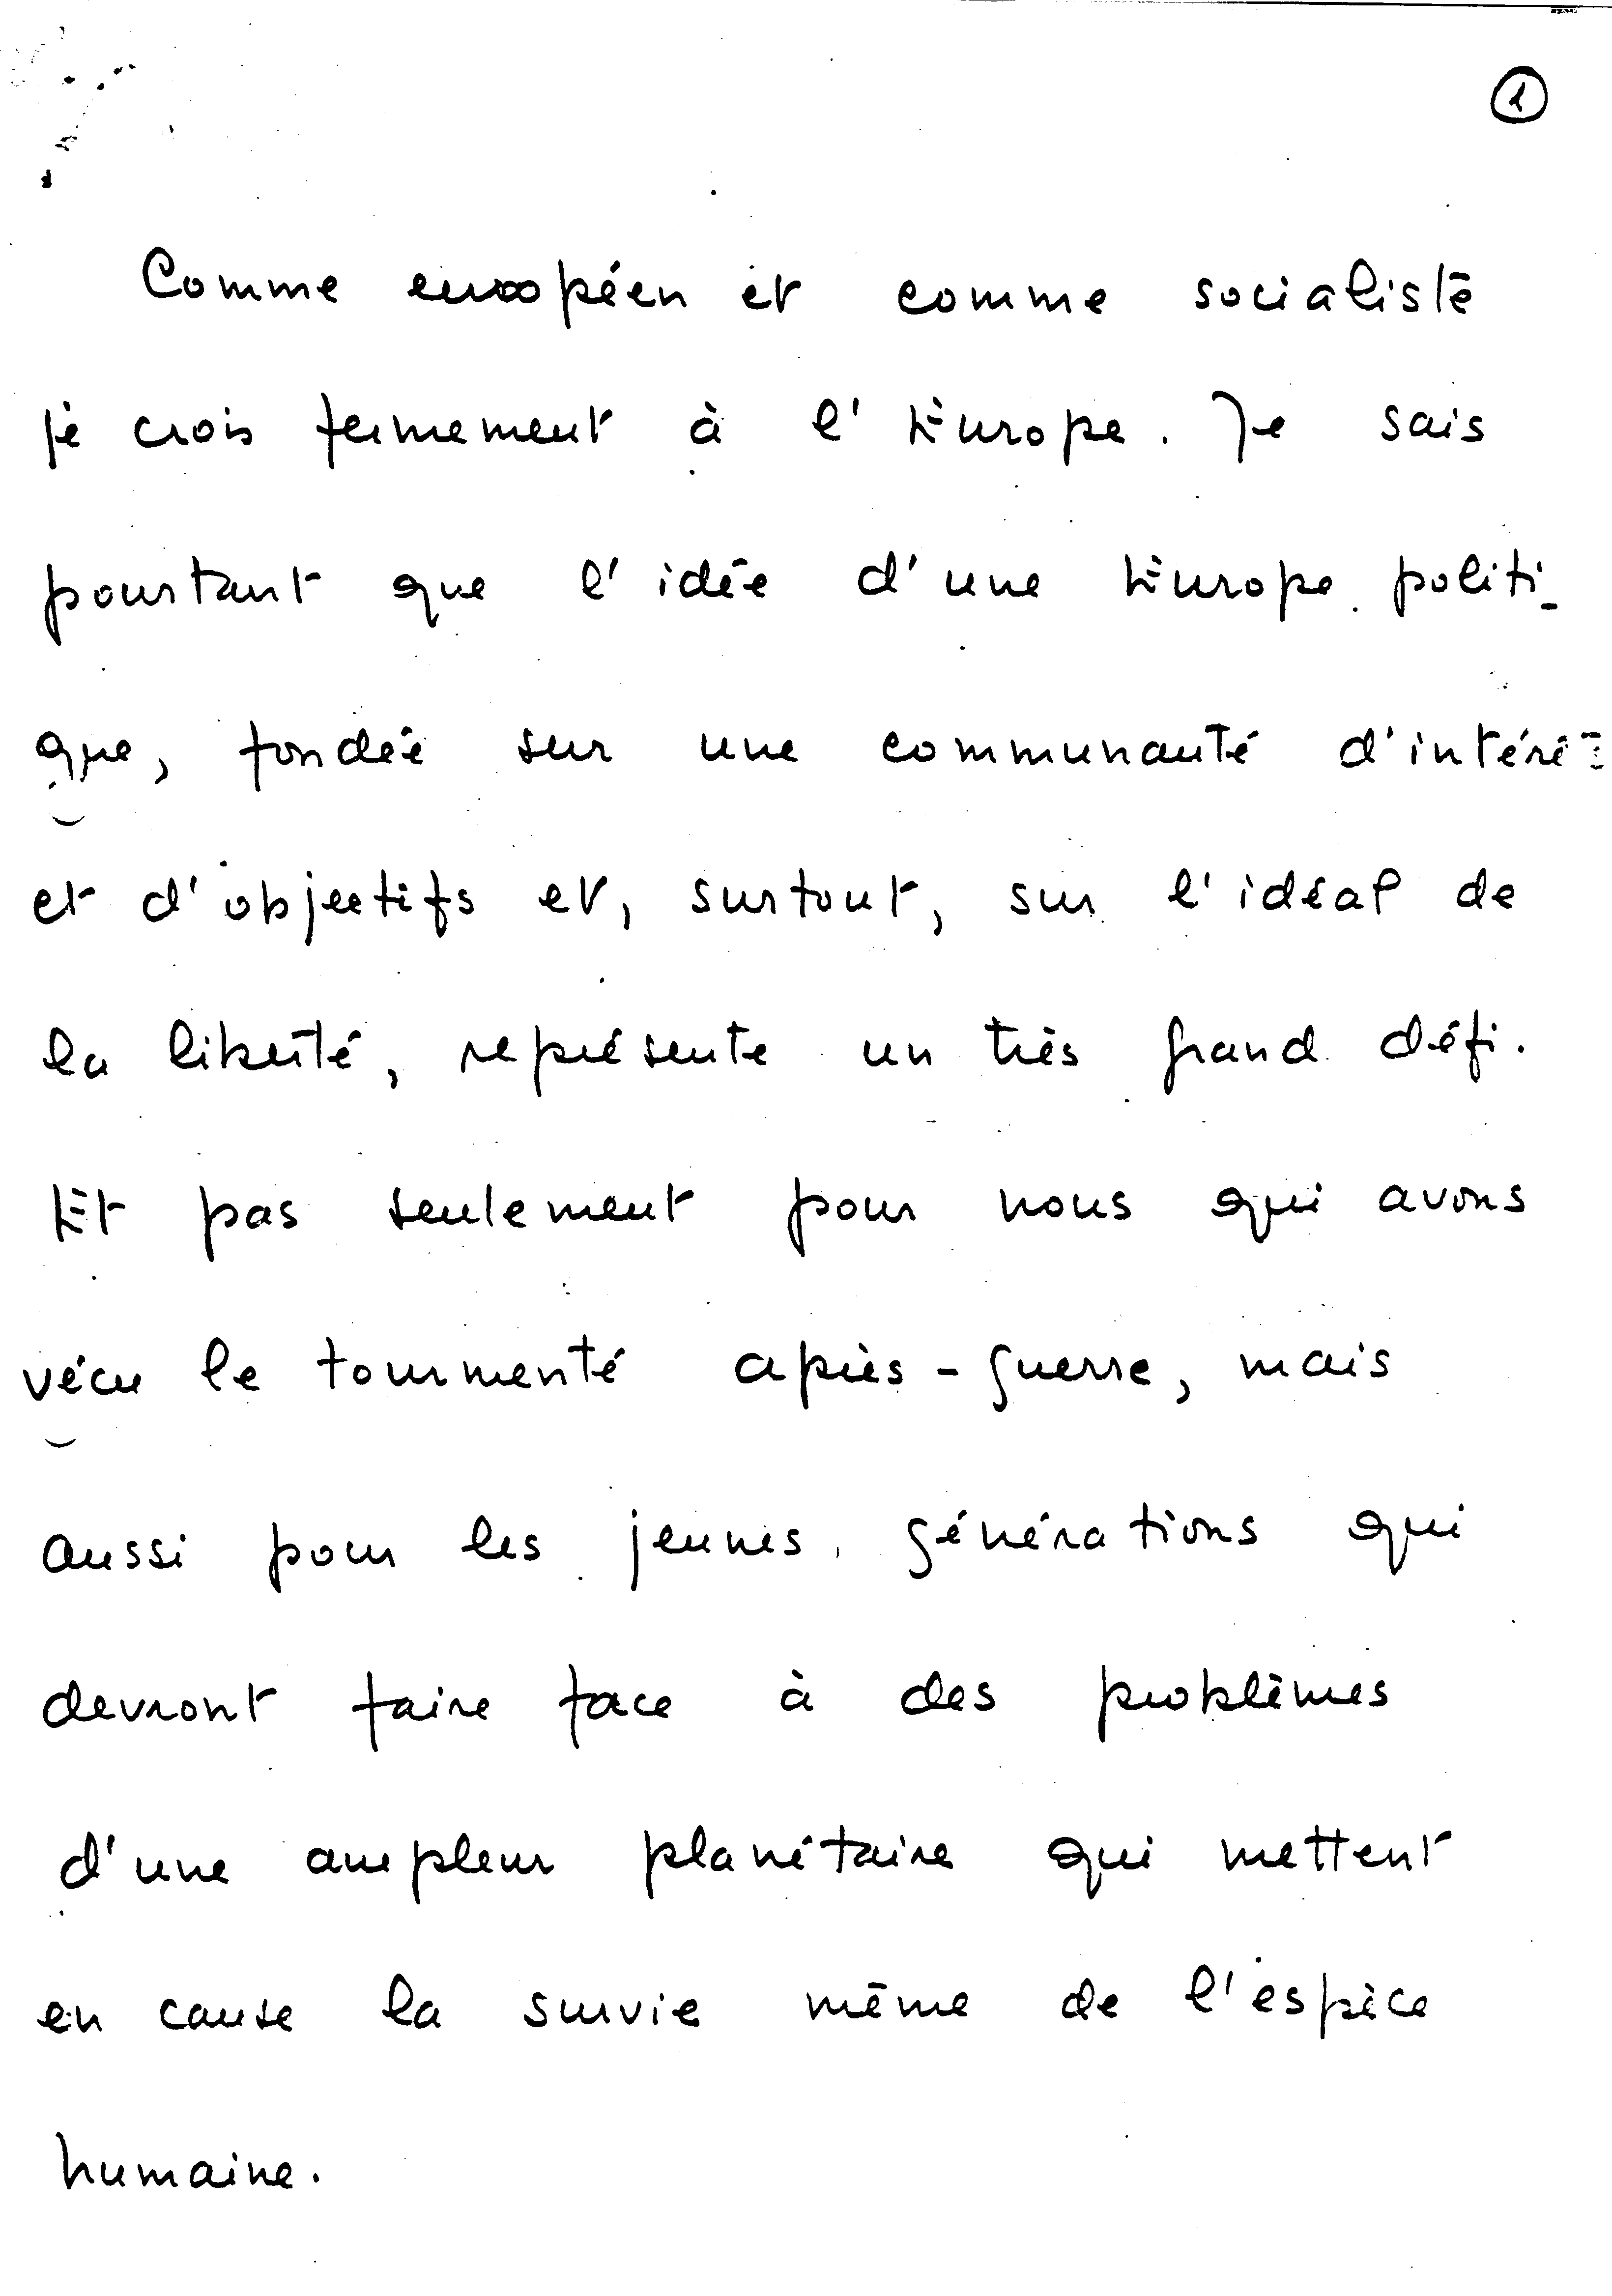 1
Comme européen et comme socialiste
je crois fermement à l'Europe. Je sais
pourtant que l'idée d'une Europe politi-
que, fondée sur une communauté d'intérêt
et d'objectifs et, surtout, sur l'idéal de
la liberté, représente un très grand défi.
Et pas seulement pour nous qui avons
vécu le tourmenté après-guerre, mais
aussi pour les jeunes générations qui
devront faire face à des problèmes
d'une ampleur planétaire qui mettent
en cause la survie même de l'espèce
humaine.